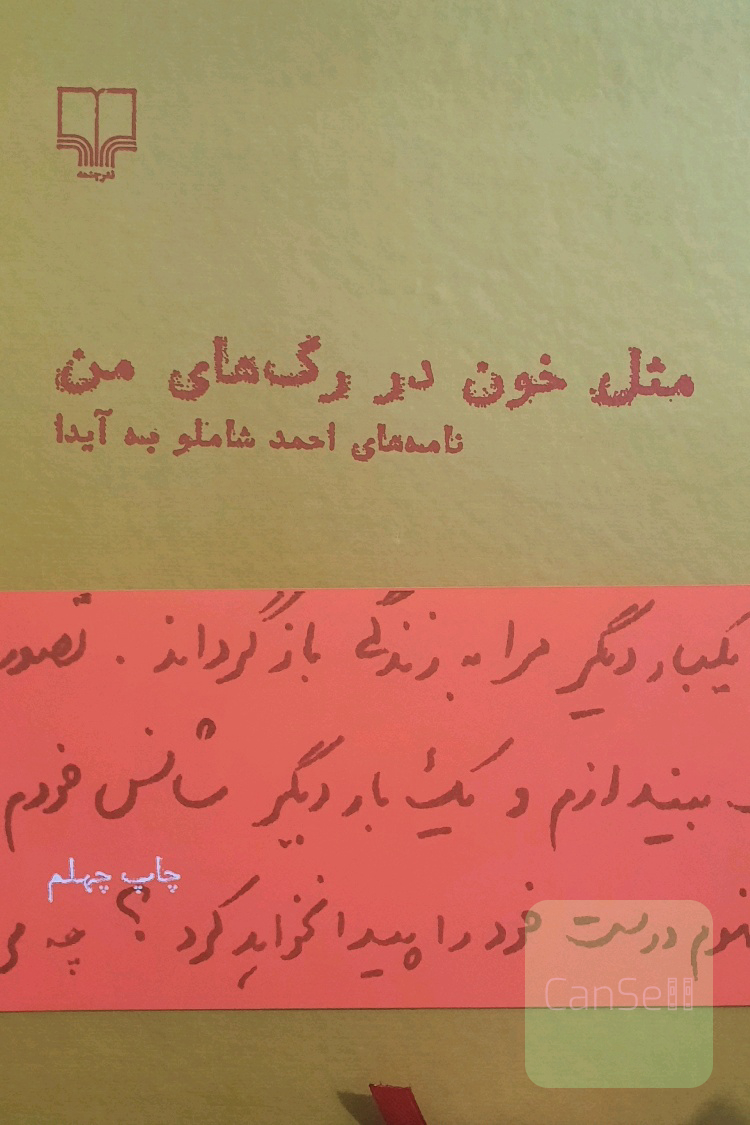 نشرچشمه
مثل خون در رگ‌های من
نامه‌های احمد شاملو به آیدا
یکبار دیگر مرا به زندگی بازگرداند . تصور
بیندازم و یک بار دیگر شانس خودم
چاپ چهلم
درست خود را پیدا نخواهد کرد ؟ چه می
CanSell